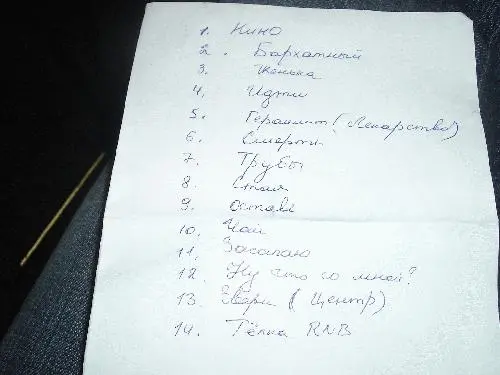 1. Кино
2. Бархатный
3. Женька
4. Идти
5. Гераклит (Лекарство)
6. Смерти
7. Трубы
8. Стая
9. Оставь
10. Чай
11. Засыпаю
12. Ну что со мной?
13. Звери (Центр)
14. Тёлка RNB